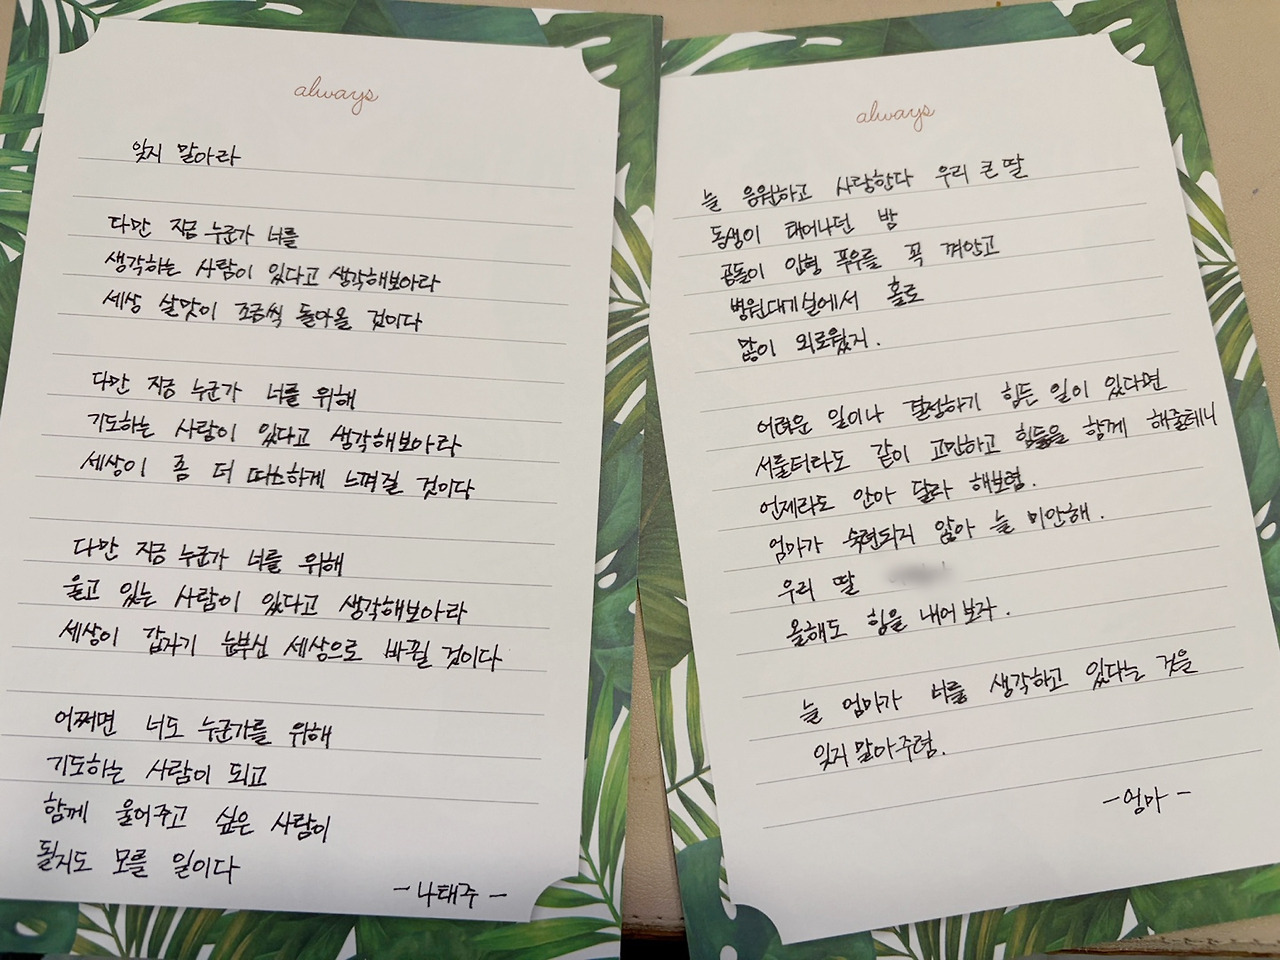 always
잊지 말아라
다만 지금 누군가 너를
생각하는 사람이 있다고 생각해보아라
세상 살맛이 조금씩 돌아올 것이다
다만 지금 누군가 너를 위해
기도하는 사람이 있다고 생각해보아라
세상이 좀 더 따스하게 느껴질 것이다
다만 지금 누군가 너를 위해
울고 있는 사람이 있다고 생각해보아라
세상이 갑자기 눈부신 세상으로 바뀔 것이다
어쩌면 너도 누군가를 위해
기도하는 사람이 되고
함께 울어주고 싶은 사람이
될지도 모를 일이다
- 나태주 -
always
늘 응원하고 사랑한다 우리 큰 딸
동생이 태어나던 밤
곰돌이 인형 푸우를 꼭 껴안고
병원대기실에서 홀로
많이 외로웠지.
어려운 일이나 결정하기 힘든 일이 있다면
서툴더라도 같이 고민하고 힘듦을 함께 해줄테니
언제라도 안아 달라 해보렴.
엄마가 숙련되지 않아 늘 미안해.
우리 딸
올해도 힘을 내어보자.
늘 엄마가 너를 생각하고 있다는 것을
잊지 말아주렴.
- 엄마 -